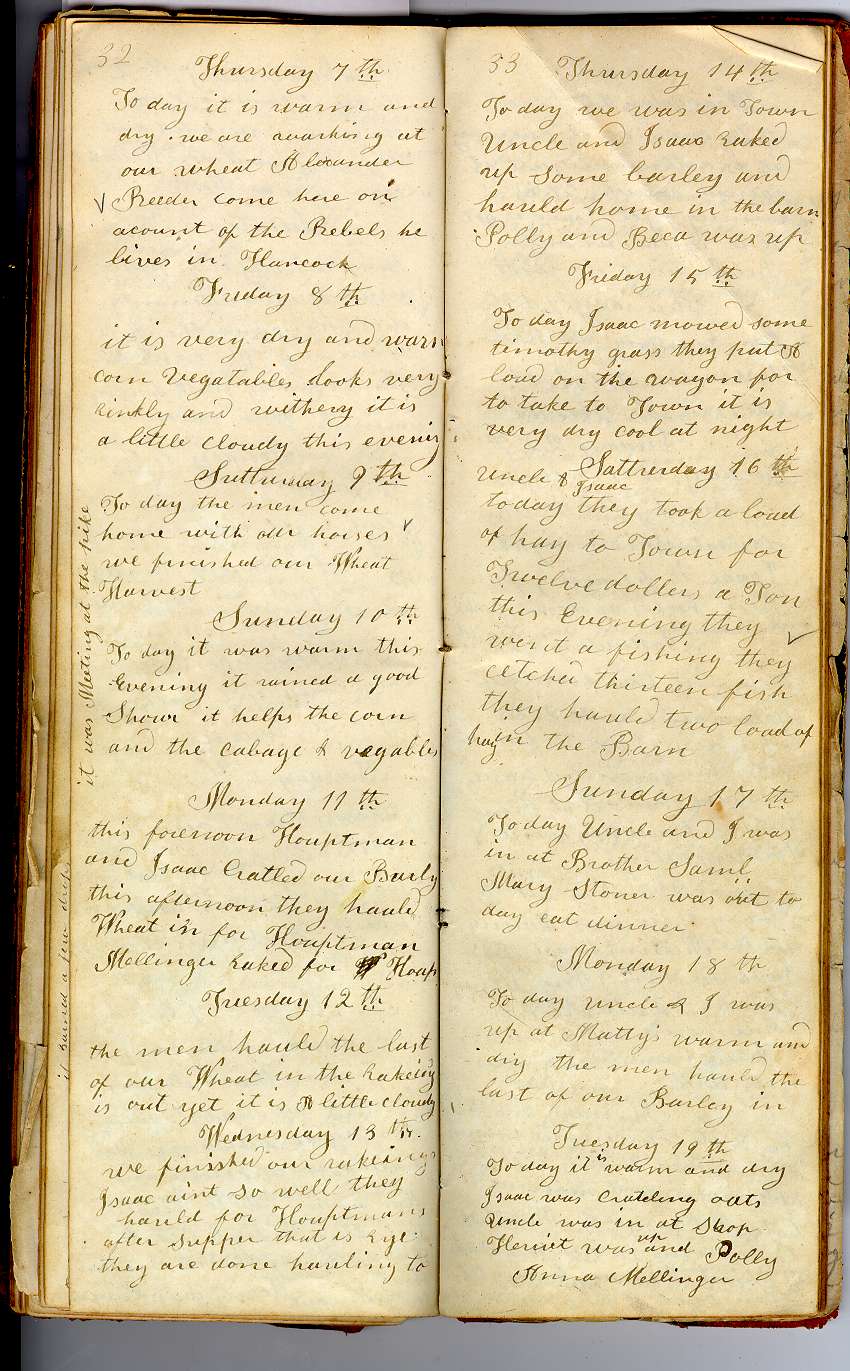 32
Thursday 7th
To day it is warm and
dry we are working at
our wheat Alexander
Reeder come here on
acount of the Rebels he
lives in Hancock
Friday 8th
it is very dry and warm
corn vegatables looks very
kinkly and withery it is
a little cloudy this evening
Satturday 9th
To day the men come
home with our horses
we finished our Wheat
Harvest
it was Meeting at the pike
Sunday 10th
To day it was warm this
Evening it rained a good
Showr it helps the corn
and the cabage & vegables
Monday 11th
this forenoon Houptman
and Isaac Cratled our Barly
this afternoon they hauld
Wheat in for Houptman
Mellinger raked for Houp
it rained a few drops
Tuesday 12th
the men hauld the last
of our Wheat in the rakeing
is out yet it is A little cloudy
Wednesday 13th.
we finished our rakeings
Isaac aint so well they
hauld for Houptmans
after supper that is rye
they are done hauling to
33
Thursday 14th
To day we was in Town
Uncle and Isaac raked
up some barley and
hauld home in the barn
Polly and Beca was up
Friday 15th
To day Isaac mowed some
timothy grass they put A
load on the wagon for
to take to Town it is
very dry cool at night
Satturday 16th
Uncle & Isaac
today they took a load
of hay to Town for
Twelve dollers a Ton
this Evening they
went a fishing they
cetched thirteen fish
they hauld two load of
hay in the Barn
Sunday 17th
To day Uncle and I was
in at Brother Saml
Mary Stoner was out to
day eat dinner
Monday 18th
To day uncle & I was
up at Matty's warm and
dry the men hauld the
last of our Barley in
Tuesday 19th
To day it is warm and dry
Isaac was cratcling oats
uncle was in at Shop
Heniet was up and Polly
Anna Mellinger